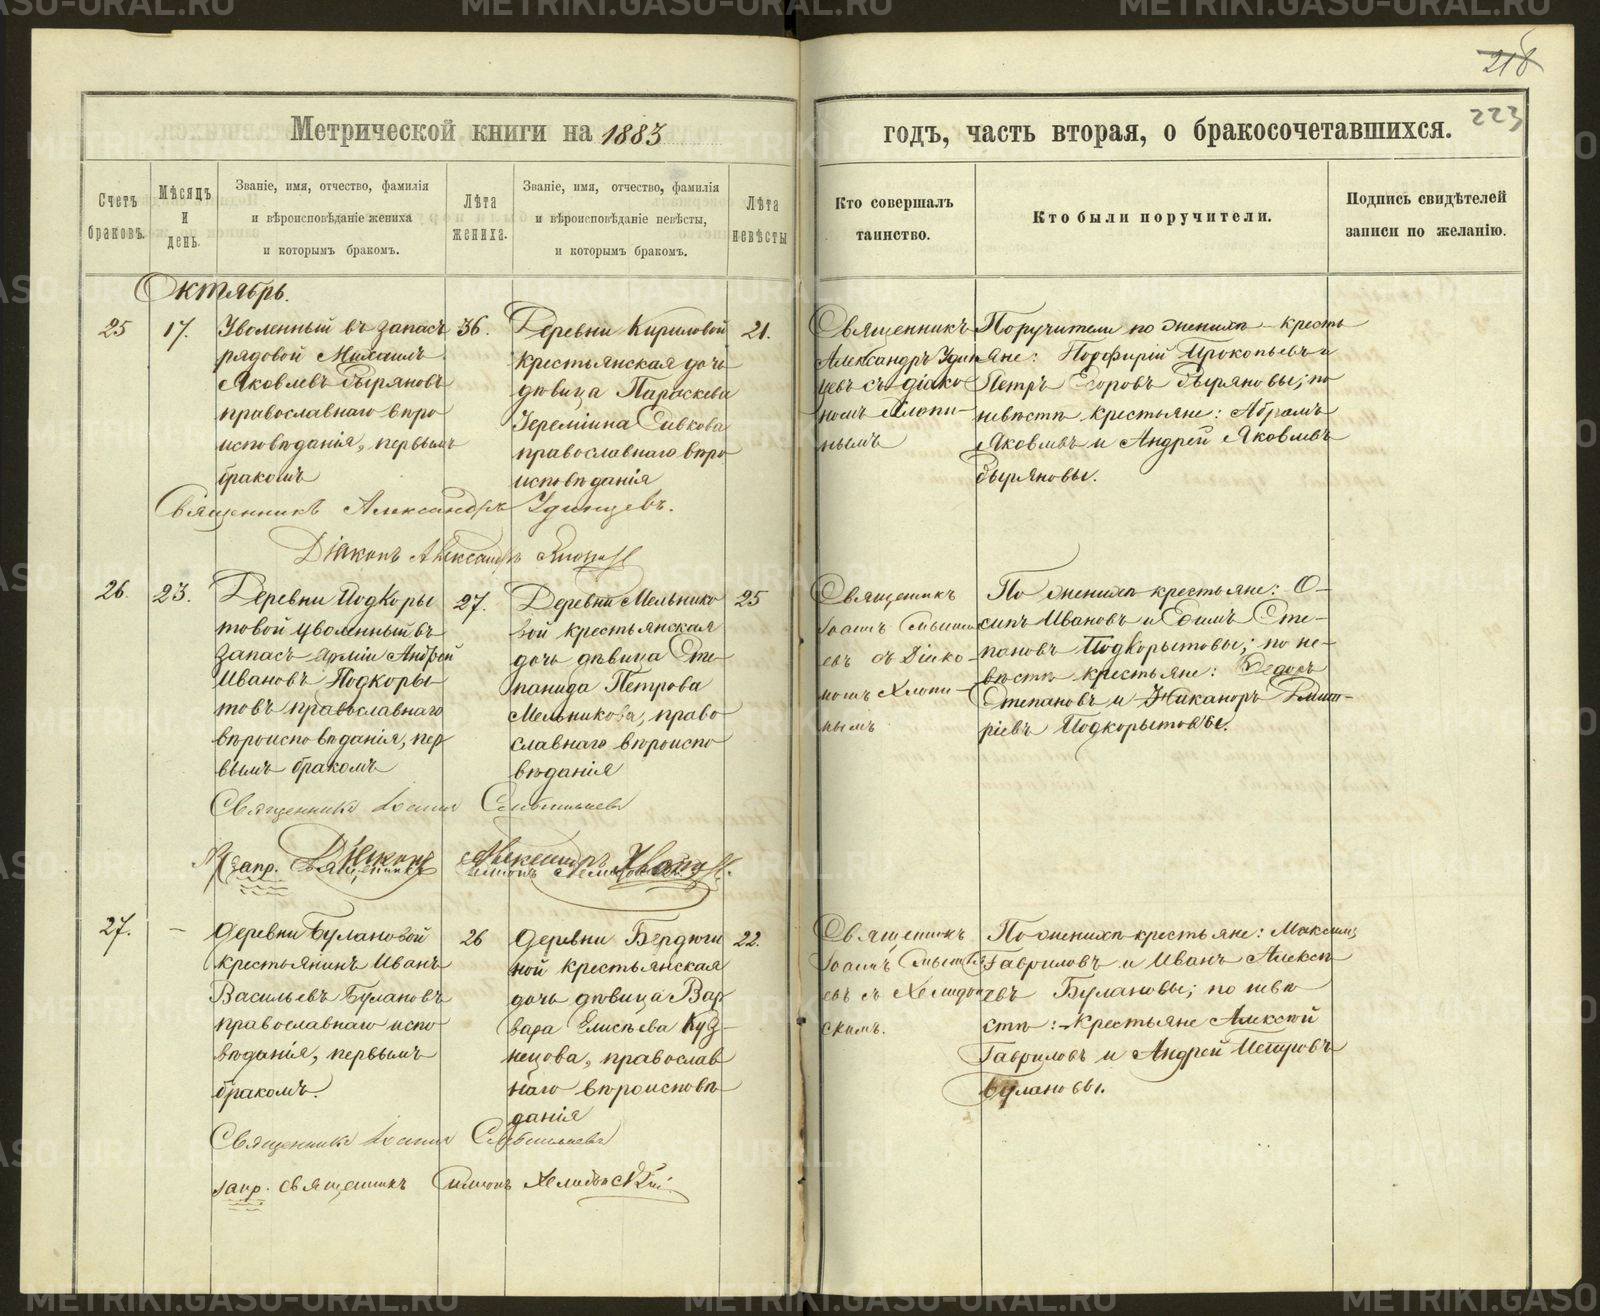 METRIKI.GASU-URAL.RU
218
223
Метрической книги на 1883
годъ, часть вторая, о бракосочетавшихся.
Счетъ браковъ.
Мѣсяцъ и день.
Званіе, имя, отчество, фамилія
и вѣроисповѣданіе жениха
и которымъ бракомъ.
Лѣта жениха.
Званіе, имя, отчество, фамилія
и вѣроисповѣданіе невѣсты,
и которымъ бракомъ.
Лѣта невѣсты
Кто совершалъ
таинство.
Кто были поручители.
Подпись свидѣтелей
записи по желанію.
Октябрь.
25
17.
Уволенный въ запасъ
рядовой Михаилъ
Яковлевъ Зыряновъ
православнаго вѣро
исповѣданія, первымъ
бракомъ
36.
Деревни Кириловой
крестьянская дочь
дѣвица Параскева
Іереміина Сивкова
православнаго вѣро
исповѣданія
21.
Священникъ
Александръ Удин
цевъ съ діако
номъ
нымъ
Поручители по женихѣ кресть
яне: Порфирій Прокопьевъ и
Петръ Егоровъ Зыряновы; по
невѣстѣ крестьяне: Абрамъ
Яковлевъ и Андрей Яковлевъ
Зыряновы.
Священникъ Александръ Удинцевъ.
Діаконъ Александръ
26.
23.
Деревни Подкоры
товой уволенный въ
запасъ арміи Андрей
Ивановъ Подкоры
товъ православнаго
вѣроисповѣданія, пер
вымъ бракомъ
27.
Деревни Мельнико
вой крестьянская
дочь дѣвица Сте
панида Петрова
Мельникова, право
славнаго вѣроиспо
вѣданія
25
Священникъ
Іоаннъ
евъ съ Діако
номъ Хлопи
нымъ
По женихѣ крестьяне: О-
сипъ Ивановъ и Ефимъ Сте-
пановъ Подкорытовы; по не-
вѣстѣ крестьяне: Федосъ
Степановъ и Никаноръ Дмит-
ріевъ Подкорытовы.
Священникъ Іоаннъ
запр. Священникъ
Діаконъ Александръ
27.
—
Деревни Булановой
крестьянинъ Иванъ
Васильевъ Булановъ
православнаго испо
вѣданія, первымъ
бракомъ.
26
Деревни Бердюги
ной крестьянская
дочь дѣвица Вар
вара Елисѣева Куз-
нецова, православ
наго вѣроисповѣ
данія
22.
Священникъ
Іоаннъ
евъ съ Хелидон
скимъ.
По женихѣ крестьяне: Максимъ
Гавриловъ и Иванъ Алексѣ
евъ Булановы; по невѣ
стѣ: крестьяне Алексѣй
Гавриловъ и Андрей Петровъ
Булановы.
Священникъ Іоаннъ
запр. священникъ Симеонъ Хелидонскій